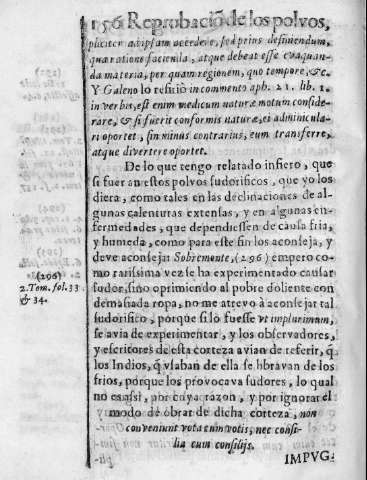 156 Reprobaciõ de los polvos,
pliciter ad ipsam accedere, sed prius definiendum,
quæ ratione facienda, atque debeat esse evaquan-
da materia, per quam regionem, quo tempore, &c.
Y Galeno lo resũió in commento aph. 21. lib. 1.
in verbis, est enim medicum naturæ motum conside-
rare, & si fuerit conformis naturæ, ei adminicula-
ri oportet, sin minus contrarius, eum transferre,
atque divertere oportet.
De lo que tengo relatado infiero, que
si fueran estos polvos sudorificos, que yo los
diera, como tales en las declinaciones de al-
gunas calenturas extensas, y en algunas en-
fermedades, que dependiessen de causa fria,
y humeda, como para este fin los aconseja, y
deve aconsejar Sobremonte, (296) empero co-
mo rarissima vez se ha experimentado causar
sudor, sino oprimiendo al pobre doliente con
demasiada ropa, no me atrevo à aconsejar tal
sudorifico, porque si lo fuesse vt implurimum,
se avia de experimentar, y los observadores,
y escritores de esta corteza avian de referir, q̃
los Indios, q̃ vsaban de ella se libravan de los
frios, porque los provocava sudores, lo qual
no es assi, por cuya razon, y por ignorar el
modo de obrar de dicha corteza, non
conveniunt vota cum votis, nec consi-
lia cum consilijs.
(296)
2. Tom. fol. 33
& 34.
IMPVG-